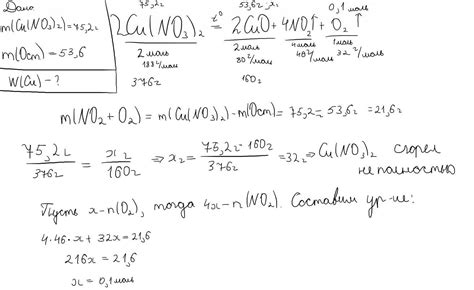 Дано
m(Cu(NO₃)₂)=75,2г
m(Ост) = 53,6
W(Cu) - ?
75,2г 53,6г, x₂ 0,1 моль
2Cu(NO₃)₂ t° = 2CuO + 4NO₂↑ + O₂↑
2 моль 2 моль 4 моль 1 моль
188 г/моль 80 г/моль 46 г/моль 32 г/моль
376г 160г
m(NO₂ + O₂) = m(Cu(NO₃)₂) - m(Ост) = 75,2 - 53,6г = 21,6г
75,2г / 376г = x₂ / 160г ⇒ x₂ = 75,2 · 160г / 376г = 32г ⇒ Cu(NO₃)₂ сгорел
не полностью
Пусть x - n(O₂), тогда 4x - n(NO₂). Составим ур-ие:
4·46·x + 32x = 21,6
216x = 21,6
x = 0,1 моль